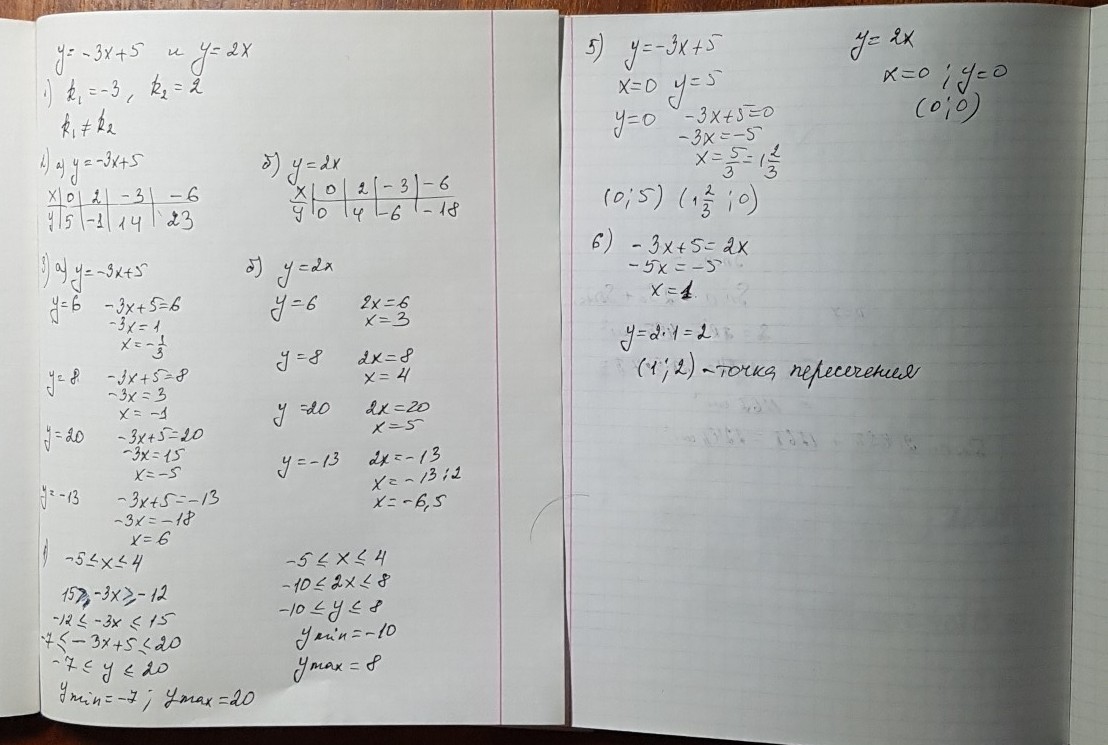 y = -3x+5 и y = 2x
1) k₁ = -3, k₂ = 2
k₁ ≠ k₂
2) а) y = -3x+5
x | 0 | 2 | -3 | -6
y | 5 | -1 | 14 | 23
б) y = 2x
x | 0 | 2 | -3 | -6
y | 0 | 4 | -6 | -18
3) а) y = -3x+5
y=6 -3x+5=6
-3x=1
x=-1/3
y=8 -3x+5=8
-3x=3
x=-1
y=20 -3x+5=20
-3x=15
x=-5
y=-13 -3x+5=-13
-3x=-18
x=6
б) y=2x
y=6 2x=6
x=3
y=8 2x=8
x=4
y=20 2x=20
x=5
y=-13 2x=-13
x=-13:2
x=-6,5
-5≤x≤4
15≥-3x≥-12
-12≤-3x≤15
-7≤-3x+5≤20
-7≤y≤20
ymin=-7; ymax=20
-5≤x≤4
-10≤2x≤8
-10≤y≤8
ymin=-10
ymax=8
5) y=-3x+5
x=0 y=5
y=0 -3x+5=0
-3x=-5
x=5/3=1 2/3
(0;5) (1 2/3;0)
y=2x
x=0; y=0
(0;0)
6) -3x+5=2x
-5x=-5
x=1
y=2·1=2
(1;2) - точка пересечения